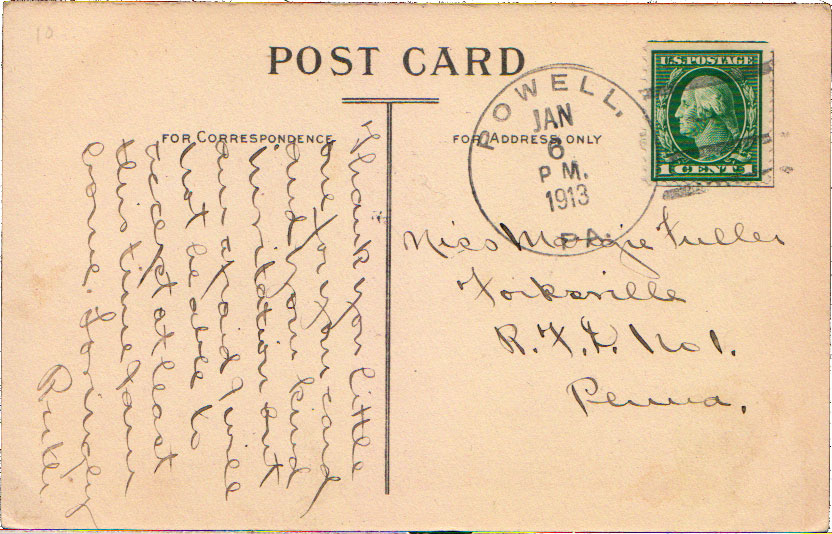 10
POST CARD
FOR CORRESPONDENCE
FOR ADDRESS ONLY
POWELL,
JAN
6
P M.
1913
PA.
U.S. POSTAGE
1 CENT 1
Thank you little
one for your card
and your kind
invitation but
am afraid I will
not be able to
accept at least
this time
Lovingly
Ruth.
Miss Margie Fuller
Forksville
R. F. D. No 1.
Penna.